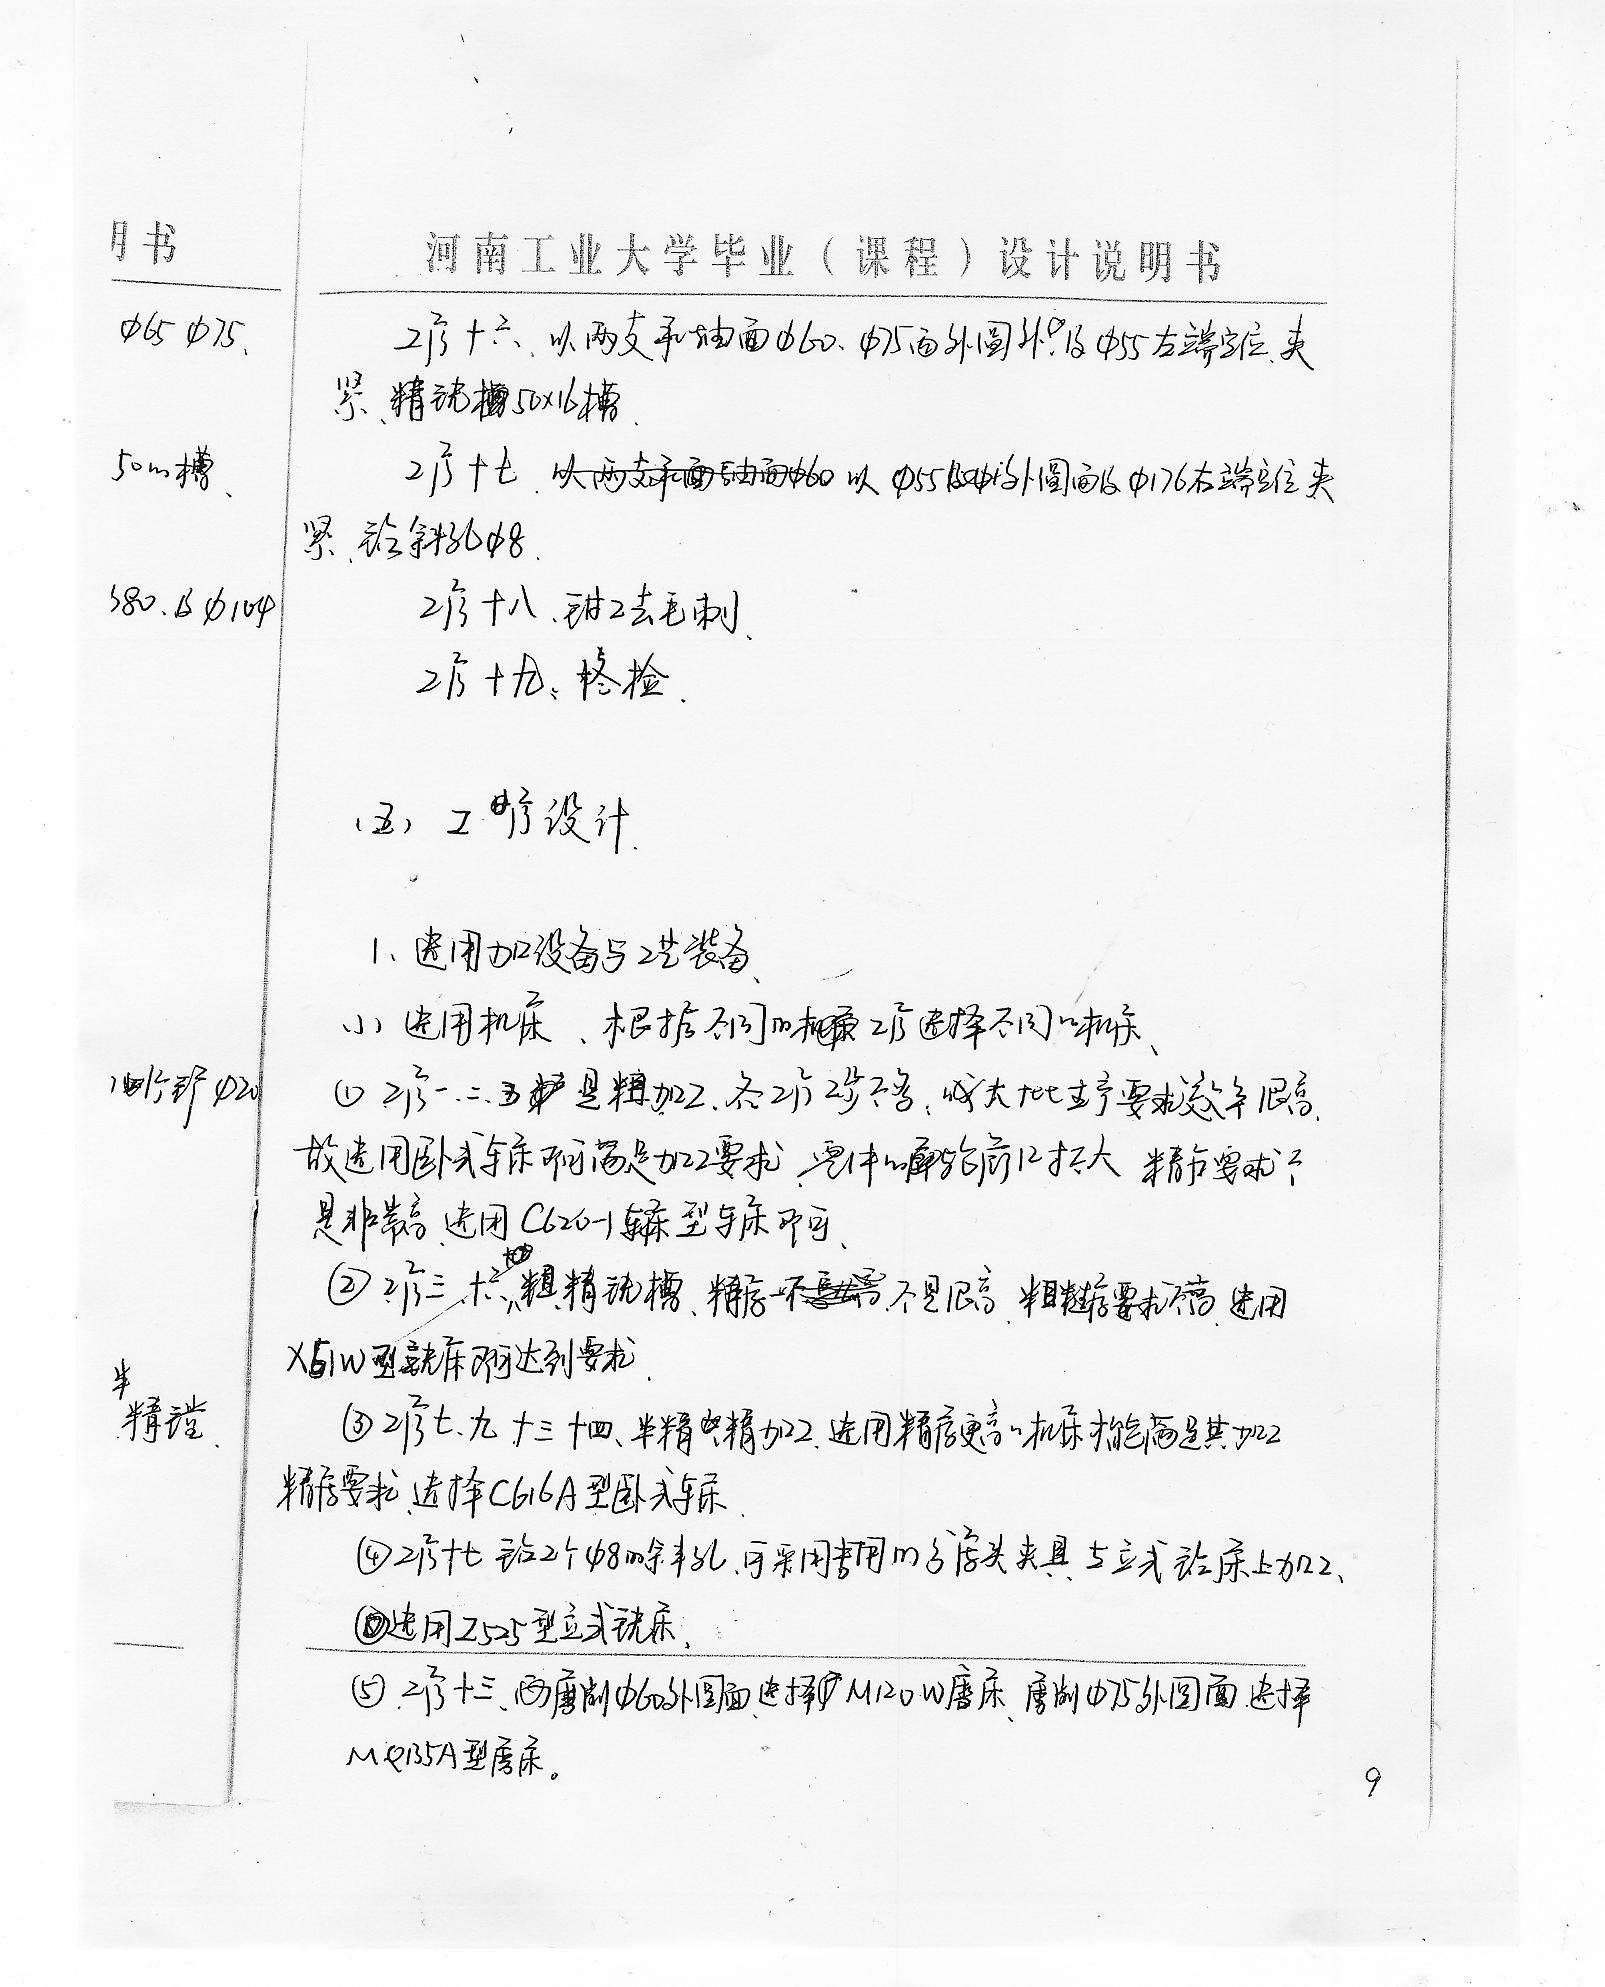 月书
河南工业大学毕业（课程）设计说明书
φ65 φ75、
工序十六、以两支承轴面φ60、φ75面外圆外及φ55左端定位、夹
紧、精铣槽50×16槽、
50的槽、
工序十七、以两支承面轴面φ60 以φ55及φ外圆面及φ176右端定位夹
紧、钻斜孔φ8、
380、及φ104
工序十八、钳工去毛刺、
工序十九、终检、
（五）工序设计、
1、选用加工设备与工艺装备、
（1）选用机床、根据不同的机床工序选择不同的机床、
φ20
① 工序一、二、五是粗加工、各工序工步不多、成大批生产要求效率很高、
故选用卧式车床即可满足加工要求、零件的轮廓尺寸不大 精度要求不
是非常高、选用C620-1车床型车床即可、
② 工序三、十六、粗、精铣槽、精度不是很高、粗糙度要求不高、选用
X51W型铣床即可达到要求、
半
精镗、
③ 工序七、九、十三、十四、半精、精加工、选用精度更高的机床才能满足其加工
精度要求、选择C616A型卧式车床、
④ 工序十七 钻2个φ8的斜孔、可采用专用的分度头夹具、在立式钻床上加工、
选用Z525型立式铣床、
⑤ 工序十三、两磨削φ60外圆面、选择M120W磨床、磨削φ75外圆面、选择
MQ135A型磨床。
9